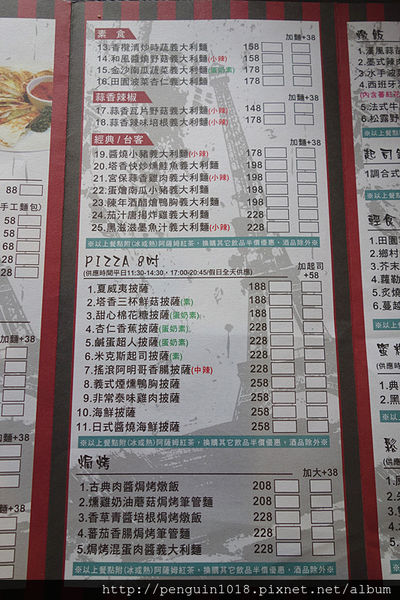 素 食
加麵+38
13.香欖清炒時蔬義大利麵 158
14.和風醬燒野菇義大利麵(小辣) 158
15.金沙南瓜蔬菜義大利麵(蛋奶素) 178
16.田園波菜杏仁義大利麵 198
蒜香辣椒
加麵+38
17.蒜香瓦片野菇義大利麵(小辣) 148
18.蒜香辣味培根義大利麵(小辣) 178
經典/台客
加麵+38
19.醬燒小豬義大利麵(小辣) 198
20.塔香快炒燻鮭魚義大利麵 198
21.宮保蒜香雞肉義大利麵(小辣) 198
22.蛋燴南瓜小豬義大利麵 198
23.陳年酒醋燴鴨胸義大利麵 198
24.茄汁唐揚炸雞義大利麵 198
25.黑滋滋墨魚汁義大利麵(小辣) 198
※以上餐點附(冰或熱)阿薩姆紅茶,換購其它飲品半價優惠,酒品除外※
PIZZA 8吋
加起司
+58
(供應時間平日11:30-14:30、17:00-20:45/假日全天供應)
1.夏威夷披薩 188
2.塔香三杯鮮菇披薩(素) 188
3.甜心棉花糖披薩(蛋奶素) 188
4.杏仁香蕉披薩(蛋奶素) 228
5.鹹蛋超人披薩(蛋奶素) 228
6.米克斯起司披薩(素) 228
7.搖滾阿明哥香腸披薩(中辣) 228
8.義式煙燻鴨胸披薩 258
9.非常泰味雞肉披薩 258
10.海鮮披薩 258
11.日式醬燒海鮮披薩 258
※以上餐點附(冰或熱)阿薩姆紅茶,換購其它飲品半價優惠,酒品除外※
焗烤
加大+38
1.古典肉醬焗烤燉飯 208
2.燻雞奶油蘑菇焗烤筆管麵 208
3.香草青醬培根焗烤燉飯 228
4.蕃茄香腸焗烤筆管麵 228
5.焗烤混蛋肉醬義大利麵 228
※以上餐點附(冰或熱)阿薩姆紅茶,換購其它飲品半價優惠,酒品除外※
88
手工麵包)
58
58
28
28
加麵+38
加麵+38
燉飯
1.漢風蒜苗
2.墨式辣肉
3.水手波菜
4.西班牙
5.法式牛
6.松露野
※以上餐點
起司鍋
1調合式
※以上餐點
輕食
1.田園
2.鄉村
3.芥末
4.蘿勒
5.炙燒
6.蔓越
※以上餐
蜜糖
(供應時
1.典
2.黑
※以上餐
鬆
(供應
http://penguin1018.pixnet.net/album